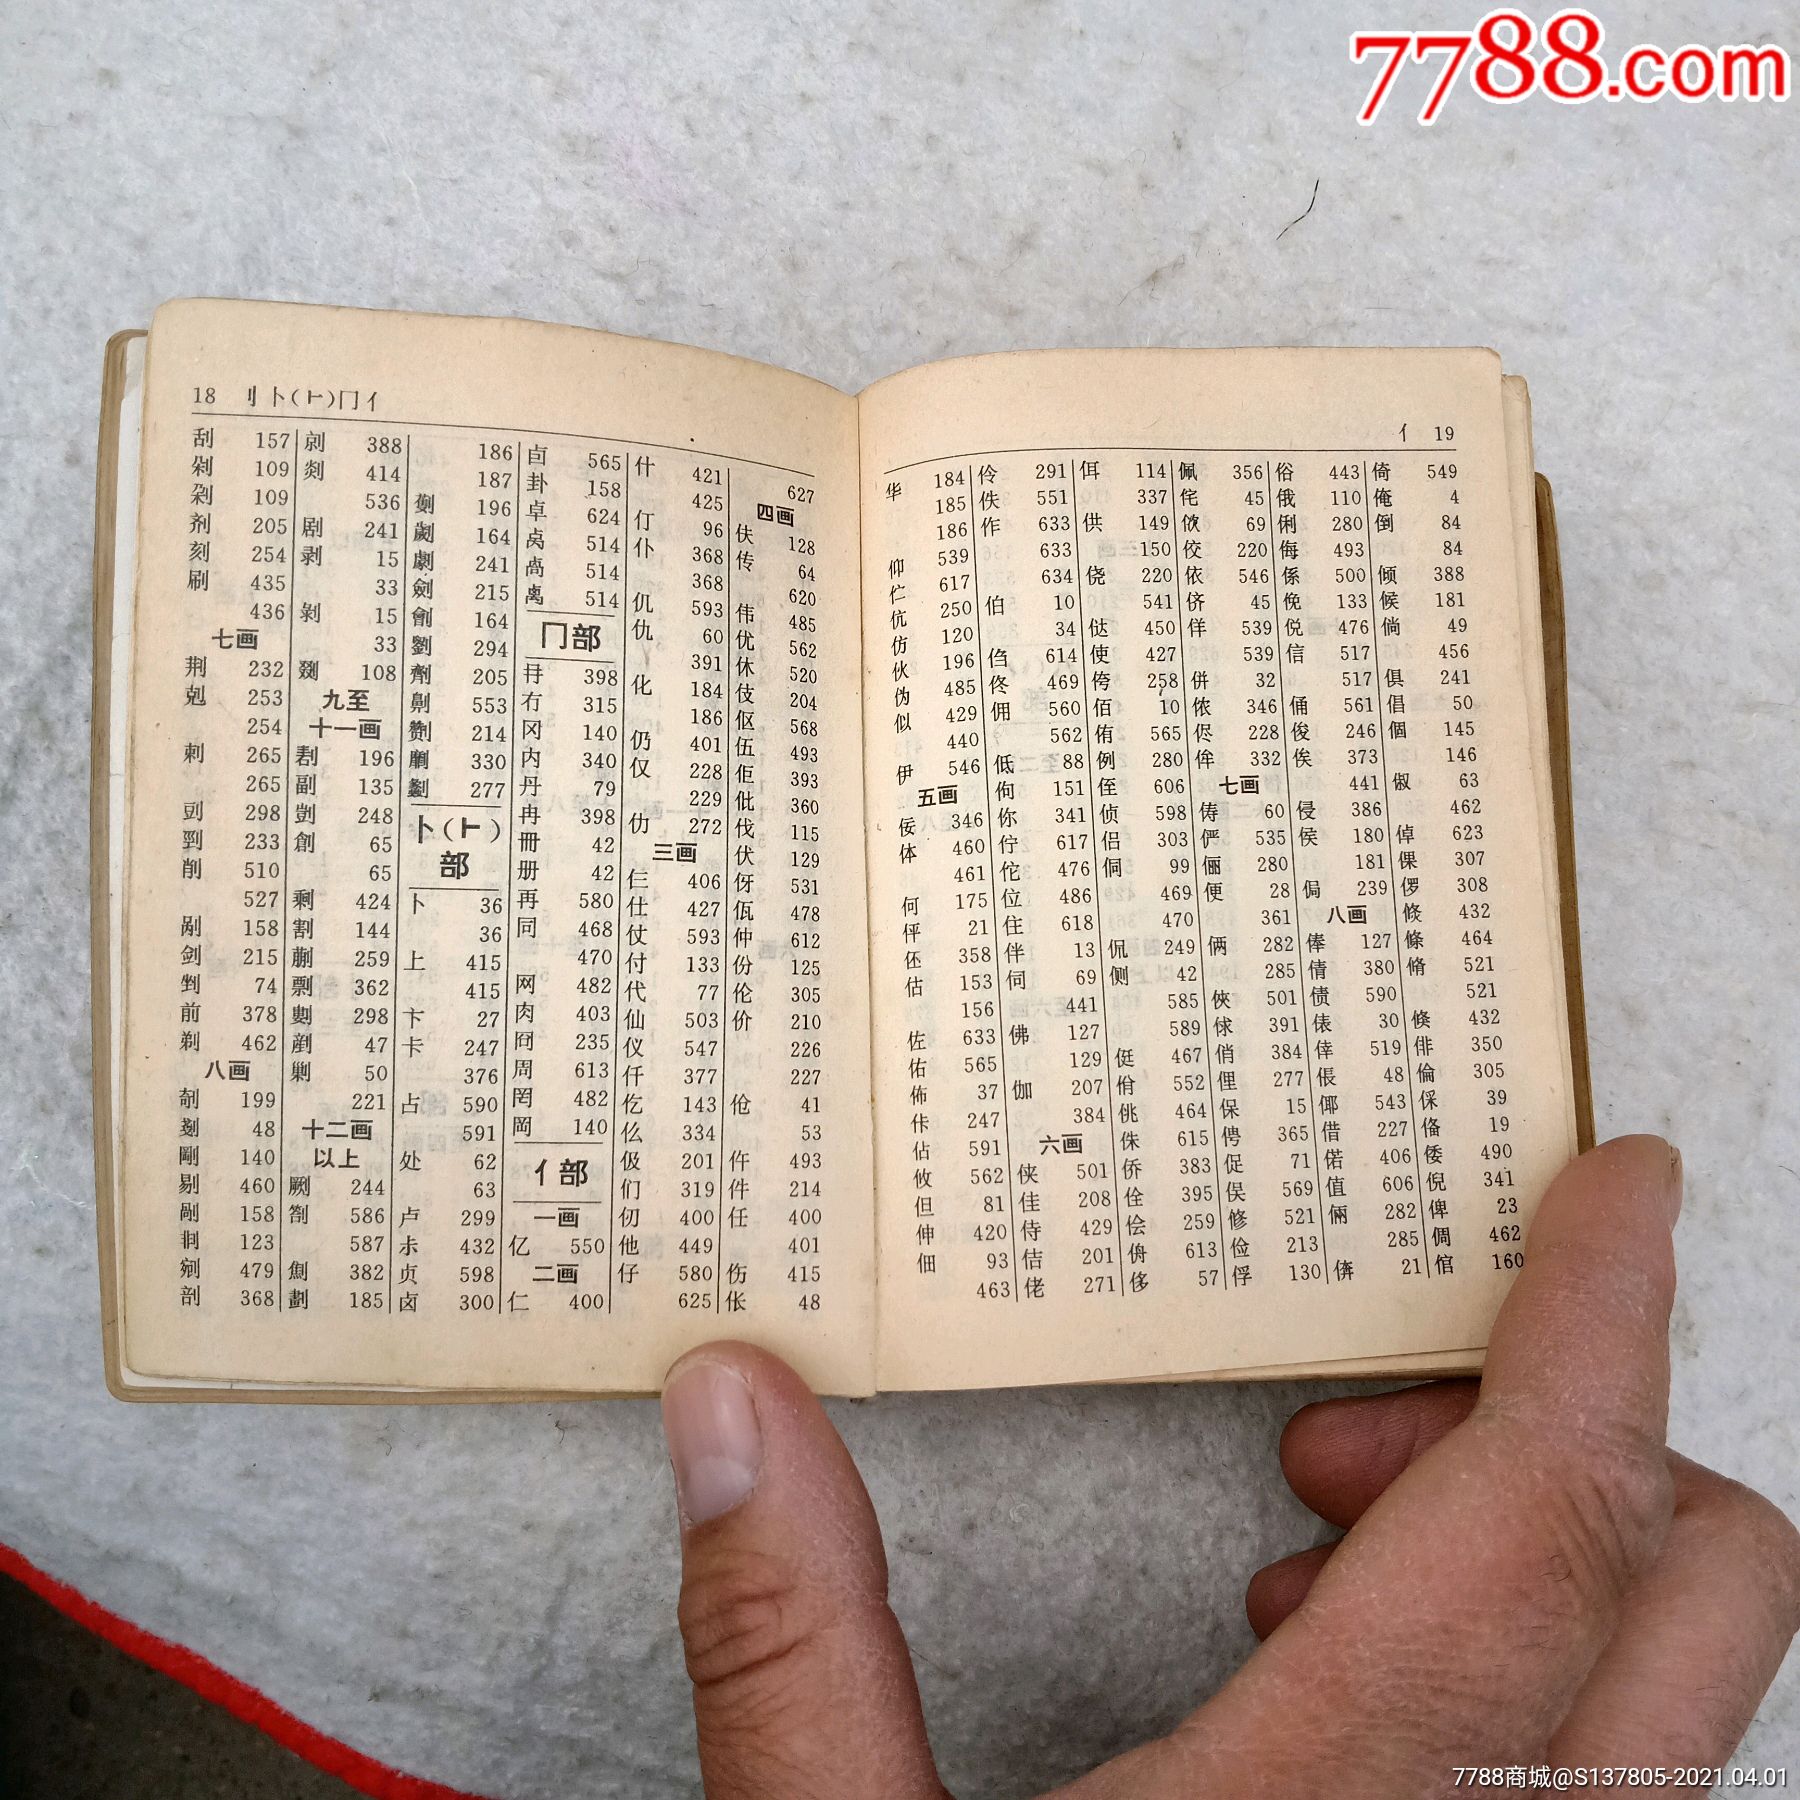 7788.com
18 刂卜(⺊)冂亻
刮 157
剁 109
剁 109
剂 205
刻 254
刷 435
436
七画
荆 232
剋 253
254
刺 265
265
剅 298
剄 233
削 510
527
剐 158
剑 215
剉 74
前 378
剃 462
八画
剞 199
剗 48
剛 140
剔 460
剮 158
剕 123
剜 479
剖 368
剠 388
剡 414
536
剧 241
剥 15
33
剝 15
33
剟 108
九至
十一画
剨 196
副 135
剴 248
創 65
65
剩 424
割 144
蒯 259
剽 362
剸 298
剷 47
剿 50
221
十二画
以上
劂 244
劄 586
587
劁 382
劃 185
186
187
劐 196
劌 164
劇 241
劍 215
劊 164
劉 294
劑 205
劓 553
劗 214
劘 330
劙 277
卜(⺊)
部
卜 36
36
上 415
415
卞 27
卡 247
376
占 590
591
处 62
63
卢 299
卡 432
贞 598
卤 300
卣 565
卦 158
卓 624
卨 514
卨 514
离 514
冂部
冄 398
冇 315
冈 140
内 340
丹 79
冉 398
冊 42
册 42
再 580
同 468
470
网 482
肉 403
冏 235
周 613
罔 482
岡 140
亻部
一画
亿 550
二画
仁 400
什 421
425
仃 96
仆 368
368
仉 593
仇 60
391
化 184
186
仍 401
仅 228
229
仂 272
三画
仨 406
仕 427
仗 593
付 133
代 77
仙 503
仪 547
仟 377
仡 143
仫 334
伋 201
们 319
仞 400
他 449
仔 580
625
627
四画
伕 128
传 64
620
伟 485
优 562
休 520
伎 204
伛 568
伍 493
伹 393
仳 360
伐 115
伏 129
伢 531
佤 478
仲 612
份 125
伦 305
价 210
226
227
伧 41
53
仵 493
件 214
任 400
401
伤 415
伥 48
亻 19
华 184
185
186
仰 539
伫 617
伉 250
仿 120
伙 196
伪 485
似 429
440
伊 546
五画
佞 346
体 460
461
何 175
伻 21
伾 358
估 153
156
佐 633
佑 565
佈 37
佧 247
佔 591
攸 562
但 81
伸 420
佃 93
463
伶 291
佚 551
作 633
633
634
伯 10
34
㑇 614
佟 469
佣 560
562
低 88
佝 151
你 341
佇 617
佗 476
位 486
住 618
伴 13
伺 69
441
佛 127
129
伽 207
384
六画
侠 501
佳 208
侍 429
佶 201
佬 271
佴 114
337
供 149
150
侥 220
541
佖 450
使 427
侉 258
佰 10
侑 565
例 280
侄 606
侦 598
侣 303
侗 99
469
470
侃 249
侧 42
585
589
侹 467
佾 552
佻 464
侏 615
侨 383
佺 395
侩 259
侜 613
侈 57
佩 356
侘 45
佽 69
佼 220
依 546
侪 45
佯 539
539
併 32
侬 346
侭 228
侔 332
七画
俦 60
俨 535
俪 280
便 28
361
俩 282
285
俠 501
俅 391
俏 384
俚 277
保 15
俜 365
促 71
俣 569
修 521
俭 213
俘 130
俗 443
俄 110
俐 280
侮 493
係 500
俛 133
侻 476
信 517
517
俑 561
俊 246
俟 373
441
侵 386
侯 180
181
侷 239
八画
俸 127
倩 380
债 590
俵 30
倖 519
倀 48
倻 543
借 227
偌 406
值 606
倆 282
285
倴 21
倚 549
俺 4
倒 84
84
倾 388
候 181
倘 49
456
俱 241
倡 50
個 145
146
俶 63
462
倬 623
倮 307
倮 308
倏 432
條 464
脩 521
521
倏 432
俳 350
倫 305
倸 39
俻 19
倭 490
倪 341
俾 23
倜 462
倌 160
7788商城@S137805-2021.04.01